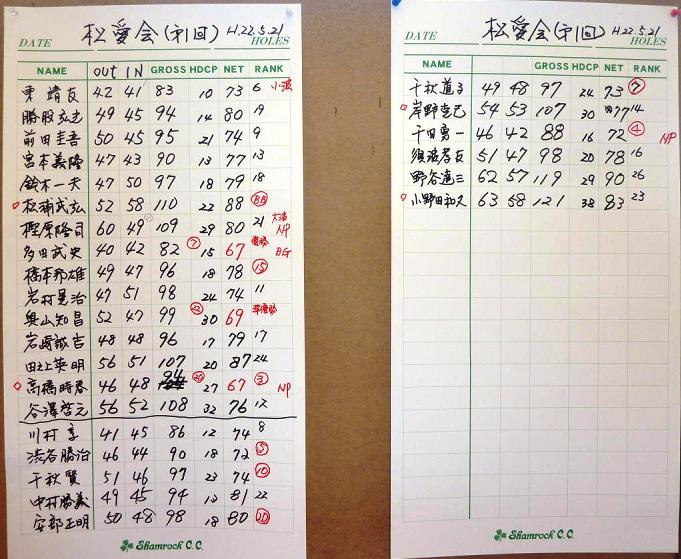 松愛会(第1回) H.22.5.21
DATE HOLES
NAME OUT IN GROSS HDCP NET RANK
東 靖友 42 41 83 10 73 6
勝股 49 45 94 14 80 19
前田圭吾 50 45 95 21 74 9
宮本義隆 47 43 90 13 77 13
鈴木一夫 47 50 97 18 79 18
松浦武弘 52 58 110 22 88 BB
樫原隆司 60 49 109 29 80 21 NP
多田武史 40 42 82 15 67 優勝 BG
橋本邦雄 49 47 96 18 78 15
岩村晃治 47 51 98 24 74 11
奥山知昌 52 47 99 30 69 準優勝
岩崎誠吉 48 48 96 17 79 17
田之上英明 56 51 107 20 87 24
高橋時春 46 48 94 27 67 3 NP
谷澤啓元 56 52 108 32 76 12
川村 享 41 45 86 12 74 8
渋谷勝治 46 44 90 18 72 5
千秋 賢 51 46 97 23 74 10
中村勝義 49 45 94 13 81 22
安部正明 50 48 98 18 80 20
Shamrock C.C.
松愛会(第1回) H.22.5.21
DATE HOLES
NAME GROSS HDCP NET RANK
千秋 49 48 97 24 73 7
岸野 54 53 107 30 77 14
千田勇一 46 42 88 16 72 4 NP
須渡孝友 51 47 98 20 78 16
野谷進三 62 57 119 29 90 26
小野田和久 63 58 121 38 83 23
Shamrock C.C.